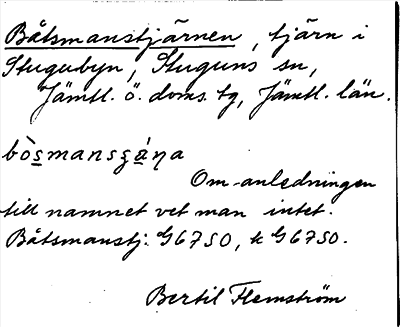 Båtsmanstjärnen, tjärn i
Stugubyn, Stuguns sn,
Jämtl. ö. doms. tg, Jämtl. län.
bòsmansʒána
Om anledningen
till namnet vet man intet.
Båtsmanstj: G6750, k G6750.
Bertil Flemström